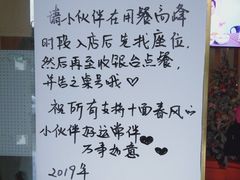 请小伙伴在用餐高峰
时段入店后先找座位,
然后再至收银台点餐,
并告之桌号哦♡
祝所有支持十面春风の
小伙伴好运常伴
万事如意
2019年